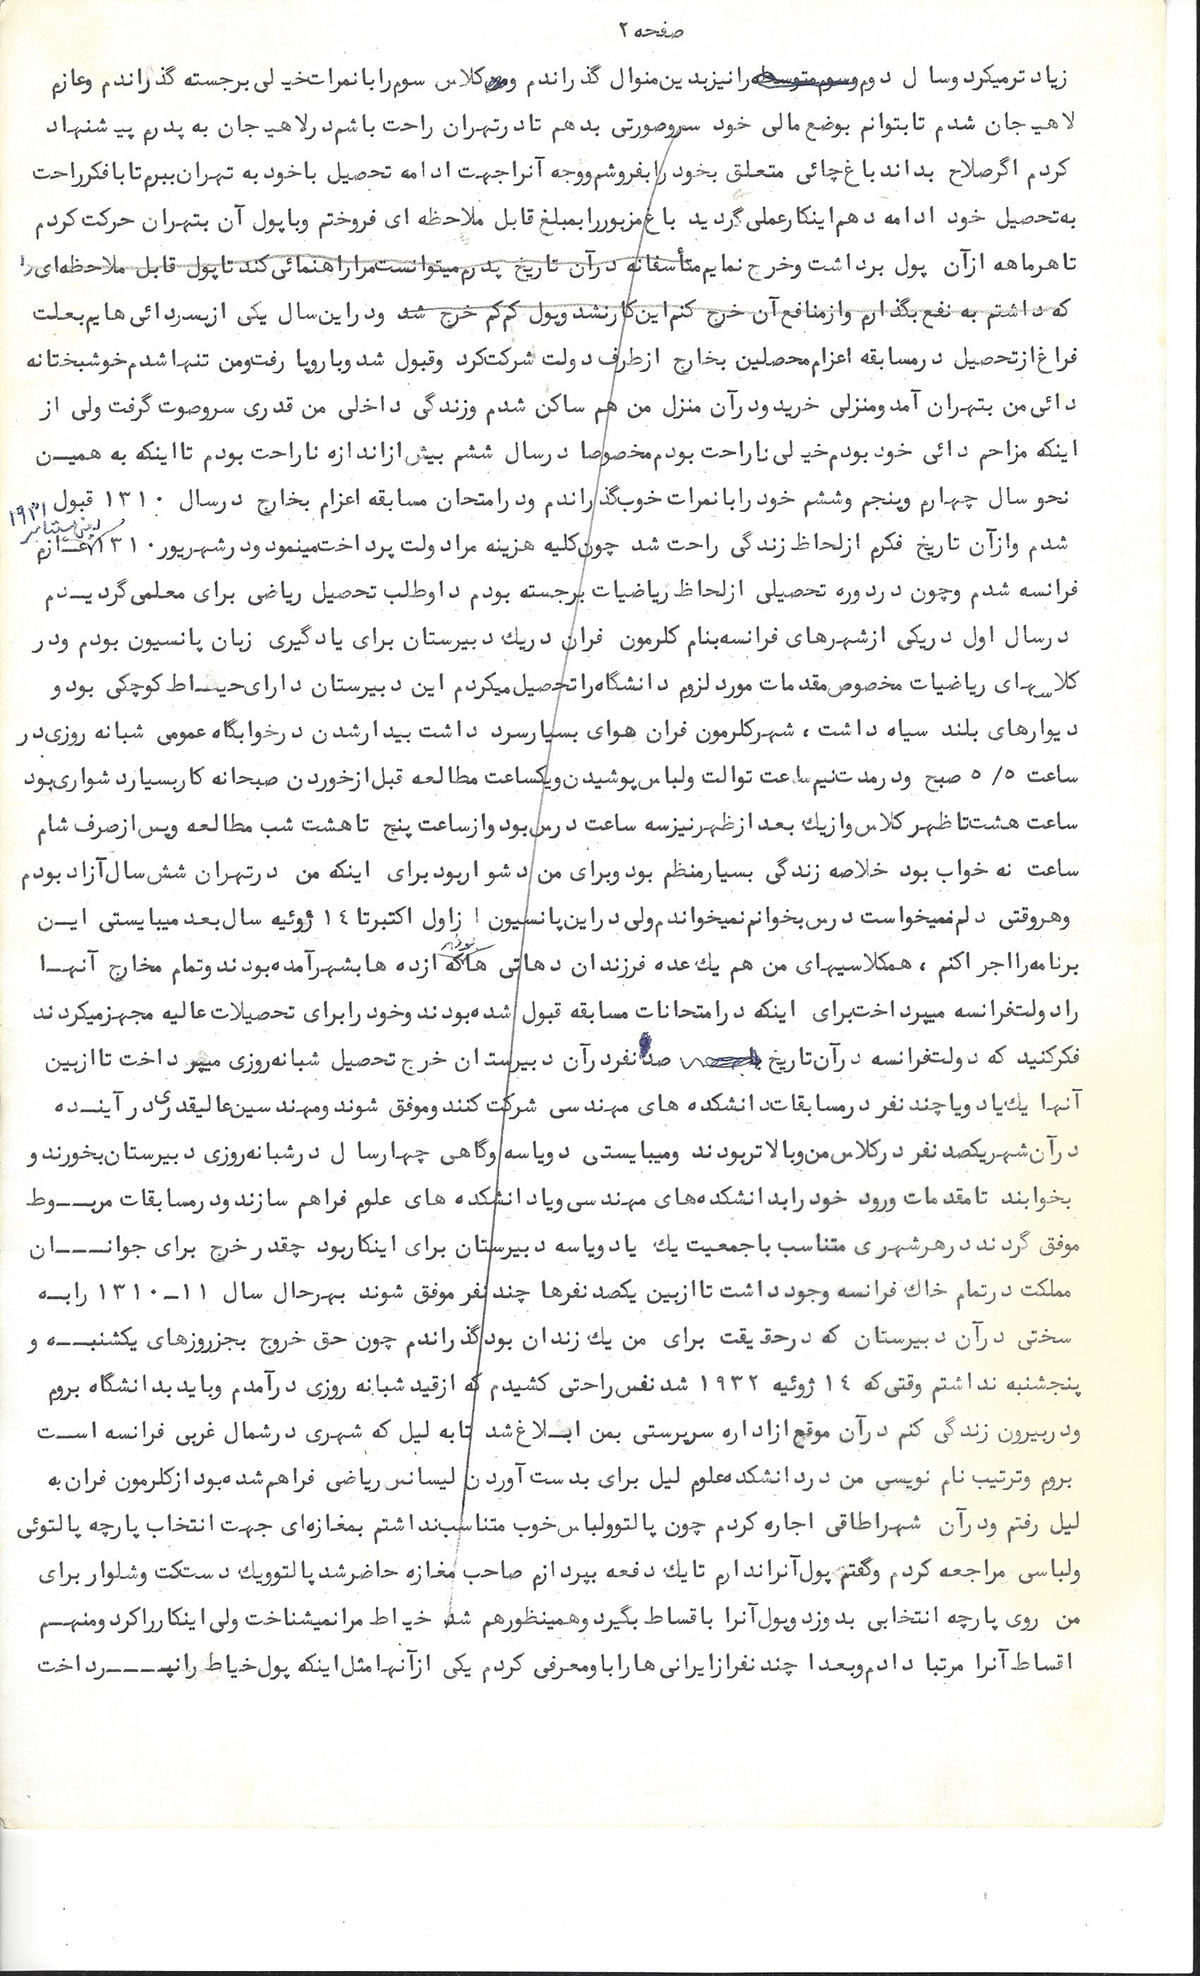 صفحه ۲
زیاد ترمیکرد وسا ل د وم وسوم متوسطه را نیز بد ین منوال گذ راند م و کلاس سوم را با نمرات خیلی برجسته گذ راند م وعازم
لا هیجان شد م تا بتوانم بوضع مالی خود سروصورتی بد هم تا د رتهران راحت باشم د رلا هیجان به پد رم پیشنهاد
کرد م اگرصلاح بد اند باغ چائی متعلق بخود را بفروشم ووجه آنرا جهت اد امه تحصیل با خود به تهران ببرم تا با فکر راحت
به تحصیل خود اد امه د هم اینکارعملی گرد ید باغ مزبور را بمبلغ قابل ملاحظه ای فروختم وبا پول آن بتهران حرکت کرد م
تا هرماهه ازآن پول برد اشت وخرج نمایم متأسفانه د رآن تاریخ پد رم میتوانست مرا راهنمائی کند تا پول قابل ملاحظه ای را
که د اشتم به نفع بگذ ارم وازمنافع آن خرج کنم این کارنشد وپول کم کم خرج شد ود راین سال یکی ازپسرد ائی هایم بعلت
فراغ ازتحصیل د رمسابقه اعزام محصلین بخارج ازطرف د ولت شرکت کرد وقبول شد وبا روپا رفت ومن تنها شد م خوشبختانه
د ائی من بتهران آمد ومنزلی خرید ود رآن منزل من هم ساکن شد م وزند گی د اخلی من قد ری سروصوت گرفت ولی از
اینکه مزاحم د ائی خود بود م خیلی نا راحت بود م مخصوصا د رسال ششم بیش ازاند ازه نا راحت بود م تا اینکه به همین
نحو سال چهارم وپنجم وششم خود را با نمرات خوب گذ راند م ود رامتحان مسابقه اعزام بخارج د رسال ۱۳۱۰ قبول ۱۹۳۱
شد م وازآن تاریخ فکرم ازلحاظ زند گی راحت شد چون کلیه هزینه مرا د ولت پرد اخت مینمود ود رشهریور ۱۳۱۰ عازم
فرانسه شد م وچون د رد وره تحصیلی ازلحاظ ریاضیات برجسته بود م د اوطلب تحصیل ریاضی برای معلمی گرد ید م
د رسال اول د ریکی ازشهرهای فرانسه بنام کلرمون فران د ریك د بیرستان برای یاد گیری زبان پانسیون بود م ود ر
کلاسهای ریاضیات مخصوص مقد مات مورد لزوم د انشگاه را تحصیل میکرد م این د بیرستان د ارای حیاط کوچکی بود و
د یوارهای بلند سیاه د اشت ، شهرکلرمون فران هوای بسیارسرد د اشت بید ارشد ن د رخوابگاه عمومی شبانه روزی د ر
ساعت ۵/۵ صبح ود رمد ت نیم ساعت توالت ولباس پوشید ن ویکساعت مطالعه قبل ازخورد ن صبحانه کاربسیارد شواری بود
ساعت هشت تا ظهر کلاس وازیك بعد ازظهر نیزسه ساعت د رس بود وازساعت پنج تا هشت شب مطالعه وپس ازصرف شام
ساعت نه خواب بود خلاصه زند گی بسیارمنظم بود وبرای من د شواربود برای اینکه من د رتهران شش سال آزاد بود م
وهروقتی د لم نمیخواست د رس بخوانم نمیخواند م ولی د راین پانسیون ا زاول اکتبرتا ۱٤ ژوئیه سال بعد میبایستی این
برنامه را اجرا کنم ، همکلاسیهای من هم یك عد ه فرزند ان د هاتی ها بودند که ازد ه ها بشهرآمد ه بود ند وتمام مخارج آنها
را د ولت فرانسه میپرد اخت برای اینکه د رامتحانات مسابقه قبول شد ه بود ند وخود را برای تحصیلات عالیه مجهزمیکرد ند
فکرکنید که د ولت فرانسه د رآن تاریخ صد نفرد رآن د بیرستان خرج تحصیل شبانه روزی میپرد اخت تا ازبین
آنها یك یاد ویا چند نفر د رمسابقات د انشکد ه های مهند سی شرکت کنند وموفق شوند ومهند سین عالیقد ری د رآیند ه
د رآن شهریکصد نفر د رکلاس من وبالا تربود ند ومیبایستی د ویا سه وگاهی چهارسا ل د رشبانه روزی د بیرستان بخورند و
بخوابند تا مقد مات ورود خود را بد انشکد ه های مهند سی ویا د انشکد ه های علوم فراهم سازند ود رمسابقات مربوط
موفق گرد ند د رهرشهری متناسب با جمعیت یك یاد ویا سه د بیرستان برای اینکاربود چقد رخرج برای جوانان
مملکت د رتمام خاك فرانسه وجود د اشت تا ازبین یکصد نفرها چند نفر موفق شوند بهرحال سال ۱۱ـ۱۳۱۰ را به
سختی د رآن د بیرستان که د رحقیقت برای من یك زند ان بود گذ راند م چون حق خروج بجزروزهای یکشنبه و
پنجشنبه ند اشتم وقتی که ۱٤ ژوئیه ۱۹۳۲ شد نفس راحتی کشید م که ازقید شبانه روزی د رآمد م وباید بد انشگاه بروم
ود ربیرون زند گی کنم د رآن موقع ازاد اره سرپرستی بمن ابلاغ شد تا به لیل که شهری د رشمال غربی فرانسه است
بروم وترتیب نام نویسی من د رد انشکد ه علوم لیل برای بد ست آورد ن لیسانس ریاضی فراهم شد ه بود ازکلرمون فران به
لیل رفتم ود رآن شهراطاقی اجاره کرد م چون پالتوولباس خوب متناسب ند اشتم بمغازه ای جهت انتخاب پارچه پالتوئی
ولباسی مراجعه کرد م وگفتم پول آنرا ند ارم تا یك د فعه بپرد ازم صاحب مغازه حاضرشد پالتوویك د ست کت وشلوار برای
من روی پارچه انتخابی بد وزد وپول آنرا با قساط بگیرد وهمینطورهم شد خیاط مرا نمیشناخت ولی اینکاررا کرد ومنهم
اقساط آنرا مرتبا د اد م وبعد ا چند نفرازایرانی ها را باومعرفی کرد م یکی ازآنها مثل اینکه پول خیاط را نپرد اخت